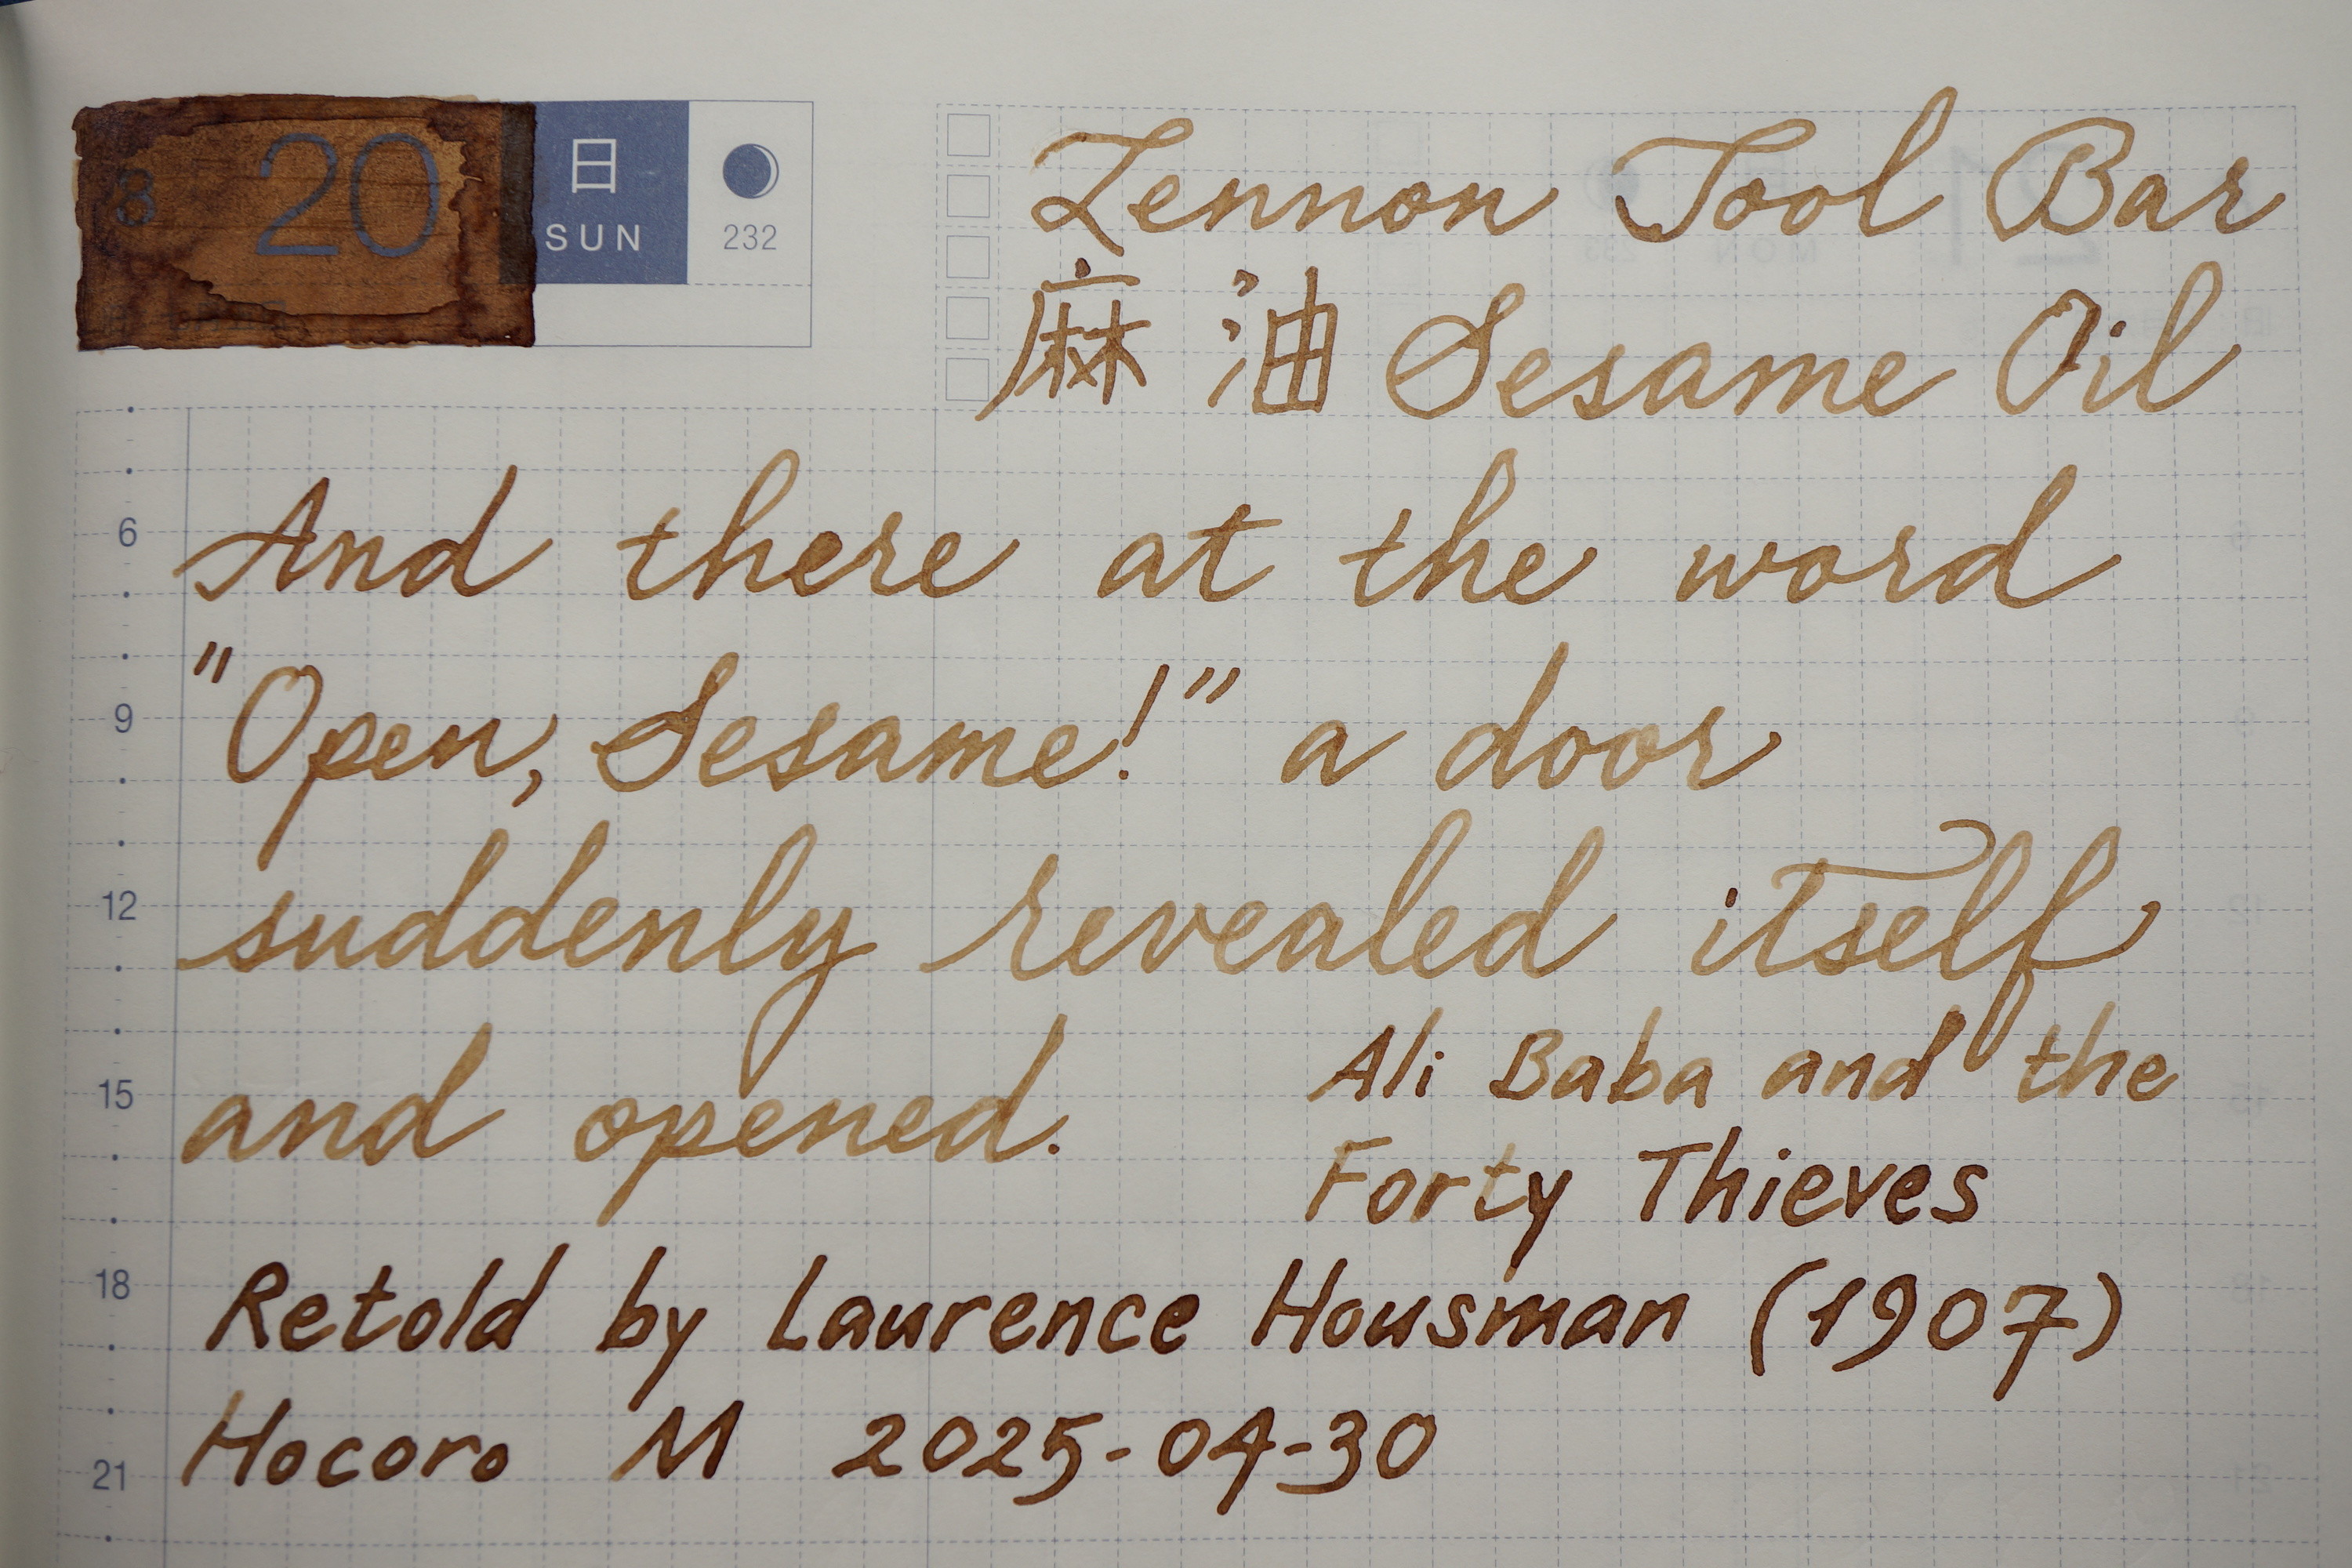 8 20 日
SUN 232
Lennon Tool Bar
麻油 Sesame Oil
And there at the word
6
"Open, Sesame!" a door
9
suddenly revealed itself
12
and opened.
15
Ali Baba and the
Forty Thieves
Retold by Laurence Housman (1907)
18
Hocoro M 2025-04-30
21